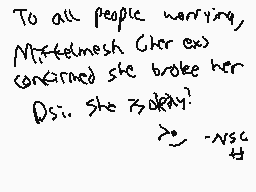 To all people worrying,
Mittelmesh (her ex)
confirmed she broke her
Dsi.. She is okay!
-NSG